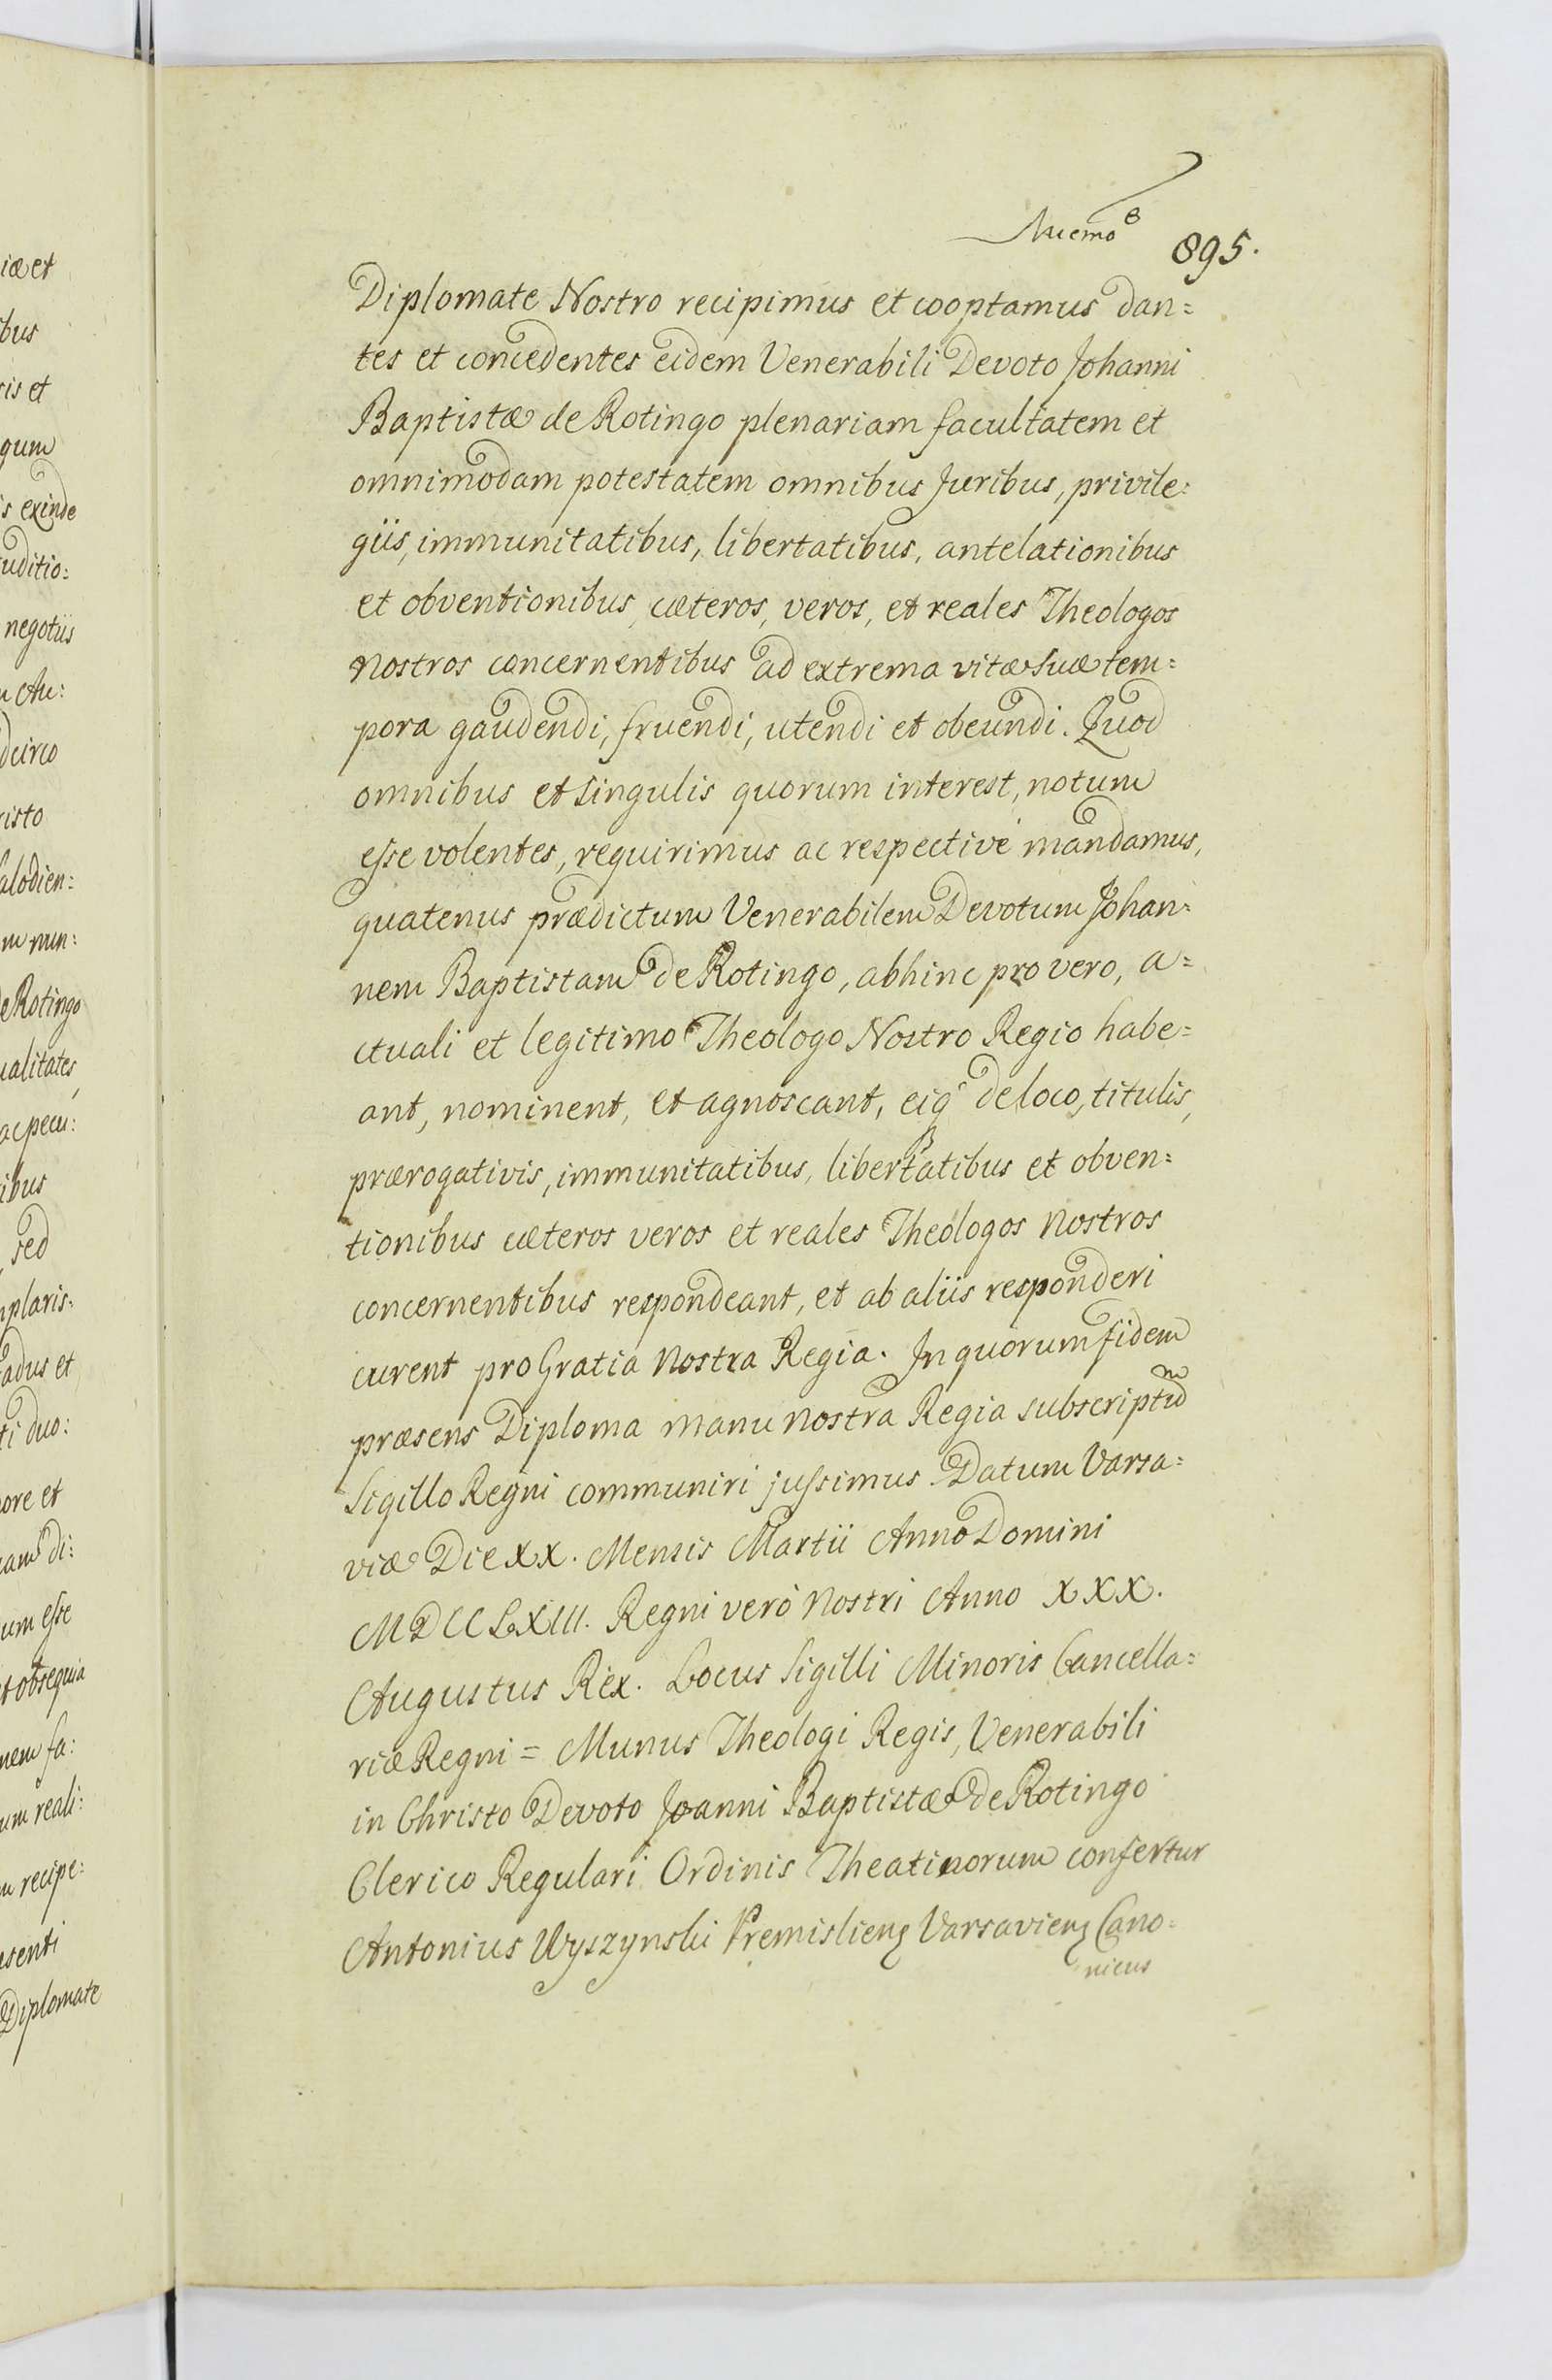 895.
Diplomate Nostro recipimus et cooptamus dan=
tes et concedentes eidem Venerabili Devoto Johanni
Baptistæ de Rotingo plenariam facultatem et
omnimodam potestatem omnibus Juribus, privile:
giis, immunitatibus, libertatibus, antelationibus
et obventionibus, cæteros, veros, et reales Theologos
nostros concernentibus ad extrema vitæ suæ tem:
pora gaudendi, fruendi, utendi et obeundi. Quod
omnibus et singulis quorum interest, notum
esse volentes, requirimus ac respectivè mandamus,
quatenus prædictum Venerabilem Devotum Johan:
nem Baptistam de Rotingo, abhinc pro vero, a=
ctuali et legitimo Theologo Nostro Regio habe=
ant, nominent, et agnoscant, eiq de loco, titulis,
prærogativis, immunitatibus, libertatibus et obven:
tionibus cæteros veros et reales Theologos nostros
concernentibus respondeant, et ab aliis responderi
curent pro Gratia nostra Regia. In quorum fidem
præsens Diploma manu nostra Regia subscriptū
Sigillo Regni communiri jussimus. Datum Varsa=
viæ Die XX. Mensis Martii Anno Domini
MDCCLXIII. Regni verò nostri Anno XXX.
Augustus Rex. Locus Sigilli Minoris Cancella=
riæ Regni = Munus Theologi Regis, Venerabili
in Christo Devoto Joanni Baptistæ de Rotingo
Clerico Regulari Ordinis Theatinorum confertur
Antonius Wyszynski Premislien Varsavien Cano=
nicus
iæ et
bus
ris et
gum
s exinde
uditio:
negotiis
u Au:
dcirco
risto
alodien:
m nun:
de Rotingo
ualitates,
ac pecu:
ibus
sed
mplaris:
adus et
ti duo:
ore et
uam di:
um esse
et obsequia
nem fa:
um reali:
m recipe:
senti
Diplomate